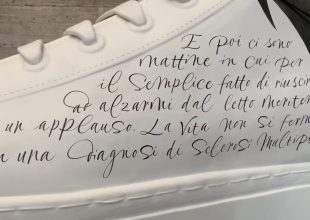 E poi ci sono
mattine in cui per
il semplice fatto di
ad alzarmi dal letto
un applauso. La vita non si
una diagnosi di Sclerosi